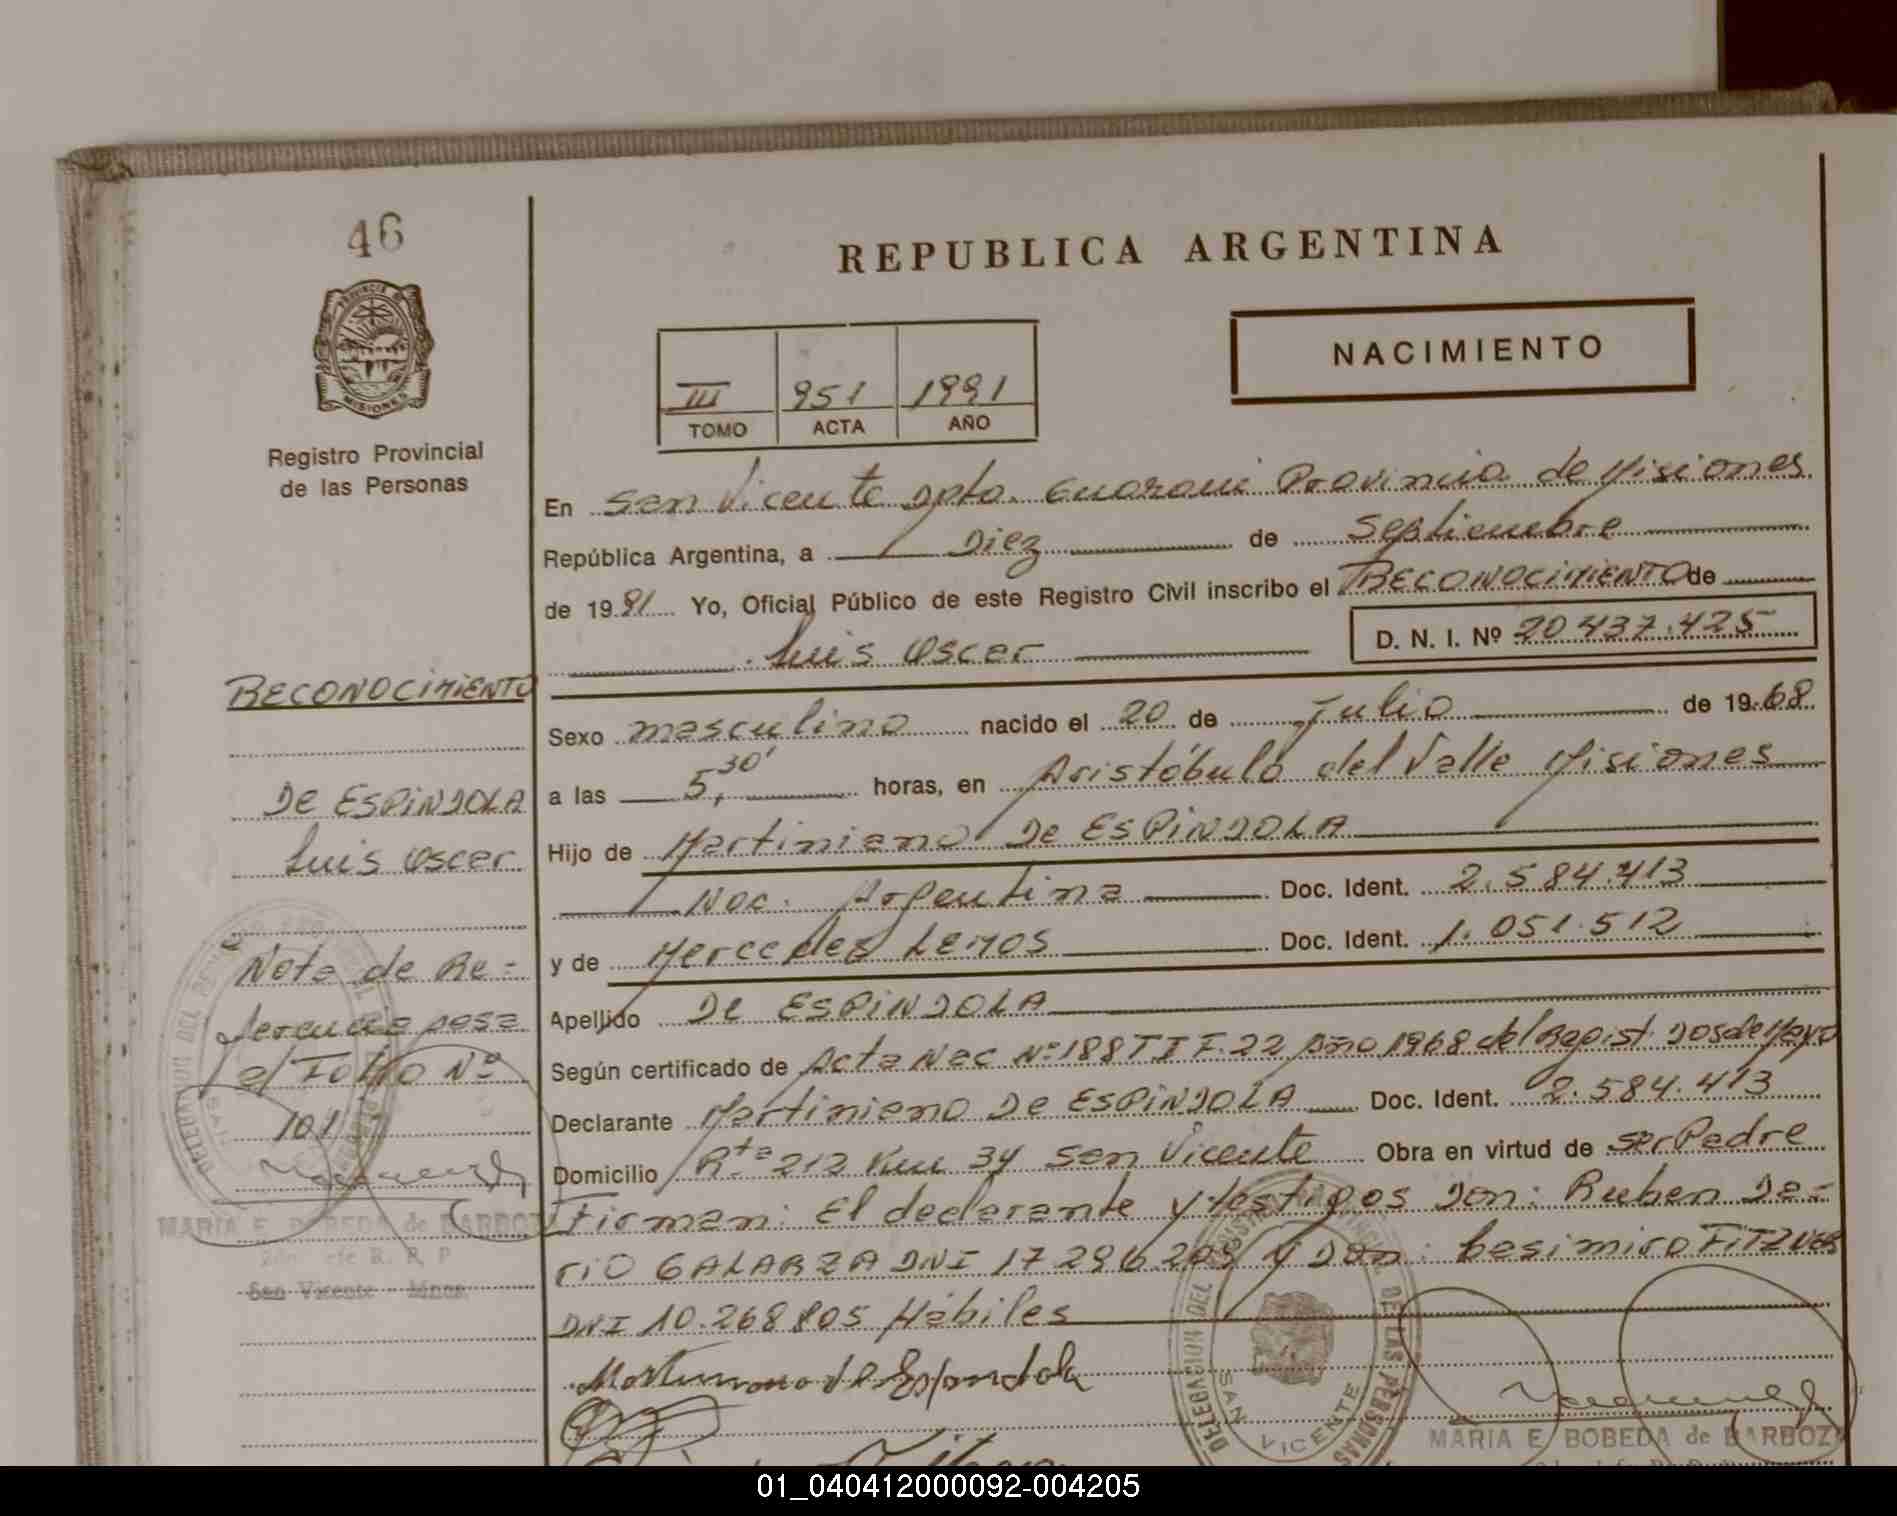 46
PROVINCIA DE
MISIONES
Registro Provincial
de las Personas
RECONOCIMIENTO
DE ESPINDOLA
Luis Oscar
Nota de Re=
ferencia pasa
al Folio Nº
101
MARIA E. BOBEDA de BARBOZ
San Vicente - Mnes
REPUBLICA ARGENTINA
NACIMIENTO
III 951 1991
TOMO ACTA AÑO
En San Vicente Dpto. Guarani Provincia de Misiones
República Argentina, a Diez de Septiembre
de 1991 Yo, Oficial Público de este Registro Civil inscribo el RECONOCIMIENTO de
Luis Oscar D. N. I. Nº 20 437.425
Sexo masculino nacido el 20 de Julio de 1968
a las 5,30' horas, en Aristóbulo del Valle Misiones
Hijo de Martiniano DE ESPINDOLA
Nac. Argentina Doc. Ident. 2.584.413
y de Mercedes LEMOS Doc. Ident. 1.051.512
Apellido DE ESPINDOLA
Según certificado de Acta Nac Nº 188 T I F.22 Año 1968 del Regist. Dos de Mayo
Declarante Martiniano DE ESPINDOLA Doc. Ident. 2.584.413
Domicilio Rta 212 Km 34 San Vicente Obra en virtud de ser Padre
Firman: El declarante y testigos Don: Ruben Da=
rio GALARZA DNI 17 296 209 y Don: Casimiro FITZNER
DNI 10.268 805 Hábiles
Martiniano de Espindola
DELEGACION DEL REGISTRO PROVINCIAL DE LAS PERSONAS
SAN VICENTE
MARIA E BOBEDA de BARBOZ
01_040412000092-004205